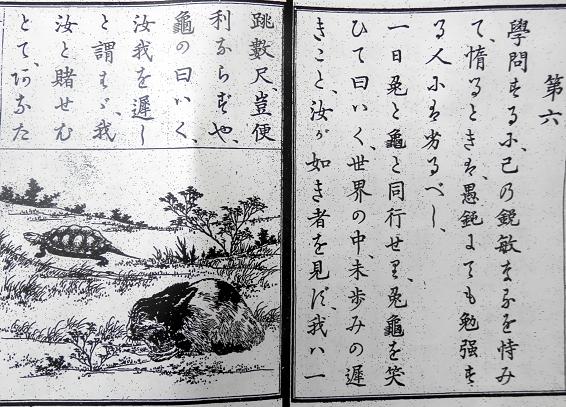 第六
學問するに、己の鋭敏なるを恃み
て、惰るときは、愚鈍にても勉強す
る人には劣るべし、
一日兔と龜と同行せり、兔龜を笑
ひて曰いく、世界の中、未歩みの遲
きこと、汝が如き者を見ず、我ハ一
跳數尺、豈便
利ならずや、
龜の曰いく、
汝我を遲し
と謂はゞ、我
汝と賭せむ
とて、あなた